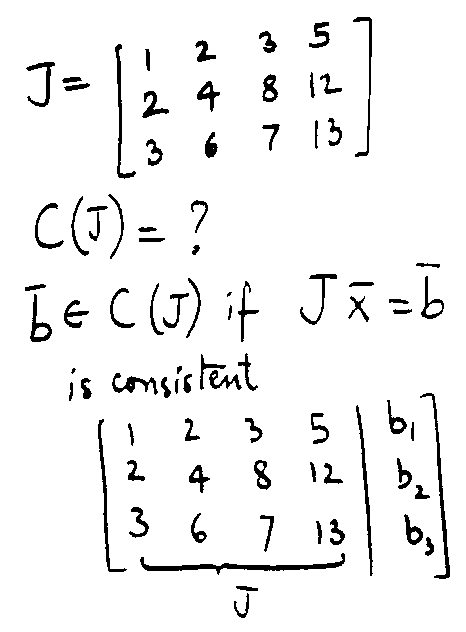 J = [ 1 2 3 5
2 4 8 12
3 6 7 13 ]
C(J) = ?
b̄ ∈ C(J) if J x̄ = b̄
is consistent
[ 1 2 3 5 | b₁
2 4 8 12 | b₂
3 6 7 13 | b₃ ]
J